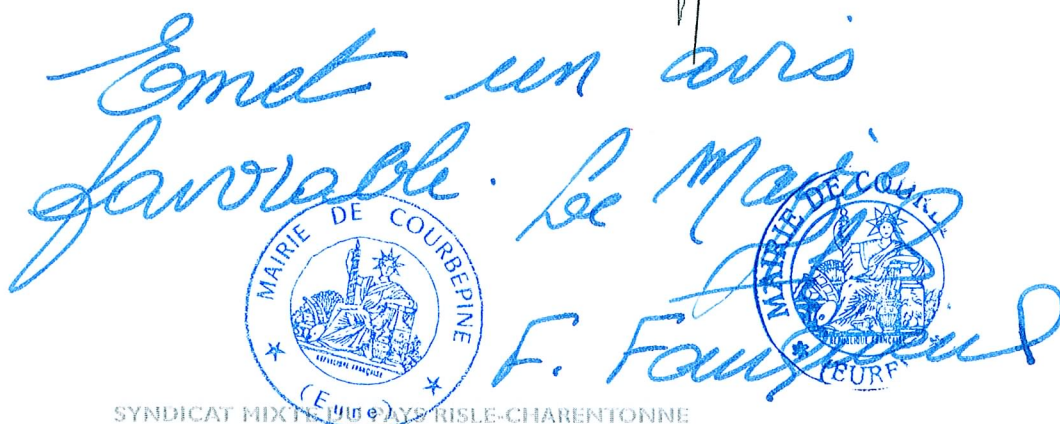 Emet un avis
favorable. Le Maire
MAIRIE DE COURBEPINE
(Eure)
RÉPUBLIQUE FRANÇAISE
MAIRIE DE COUR
RÉPUBLIQUE FRANÇAISE
(EURE
F.
SYNDICAT MIXTE DU PAYS RISLE-CHARENTONNE